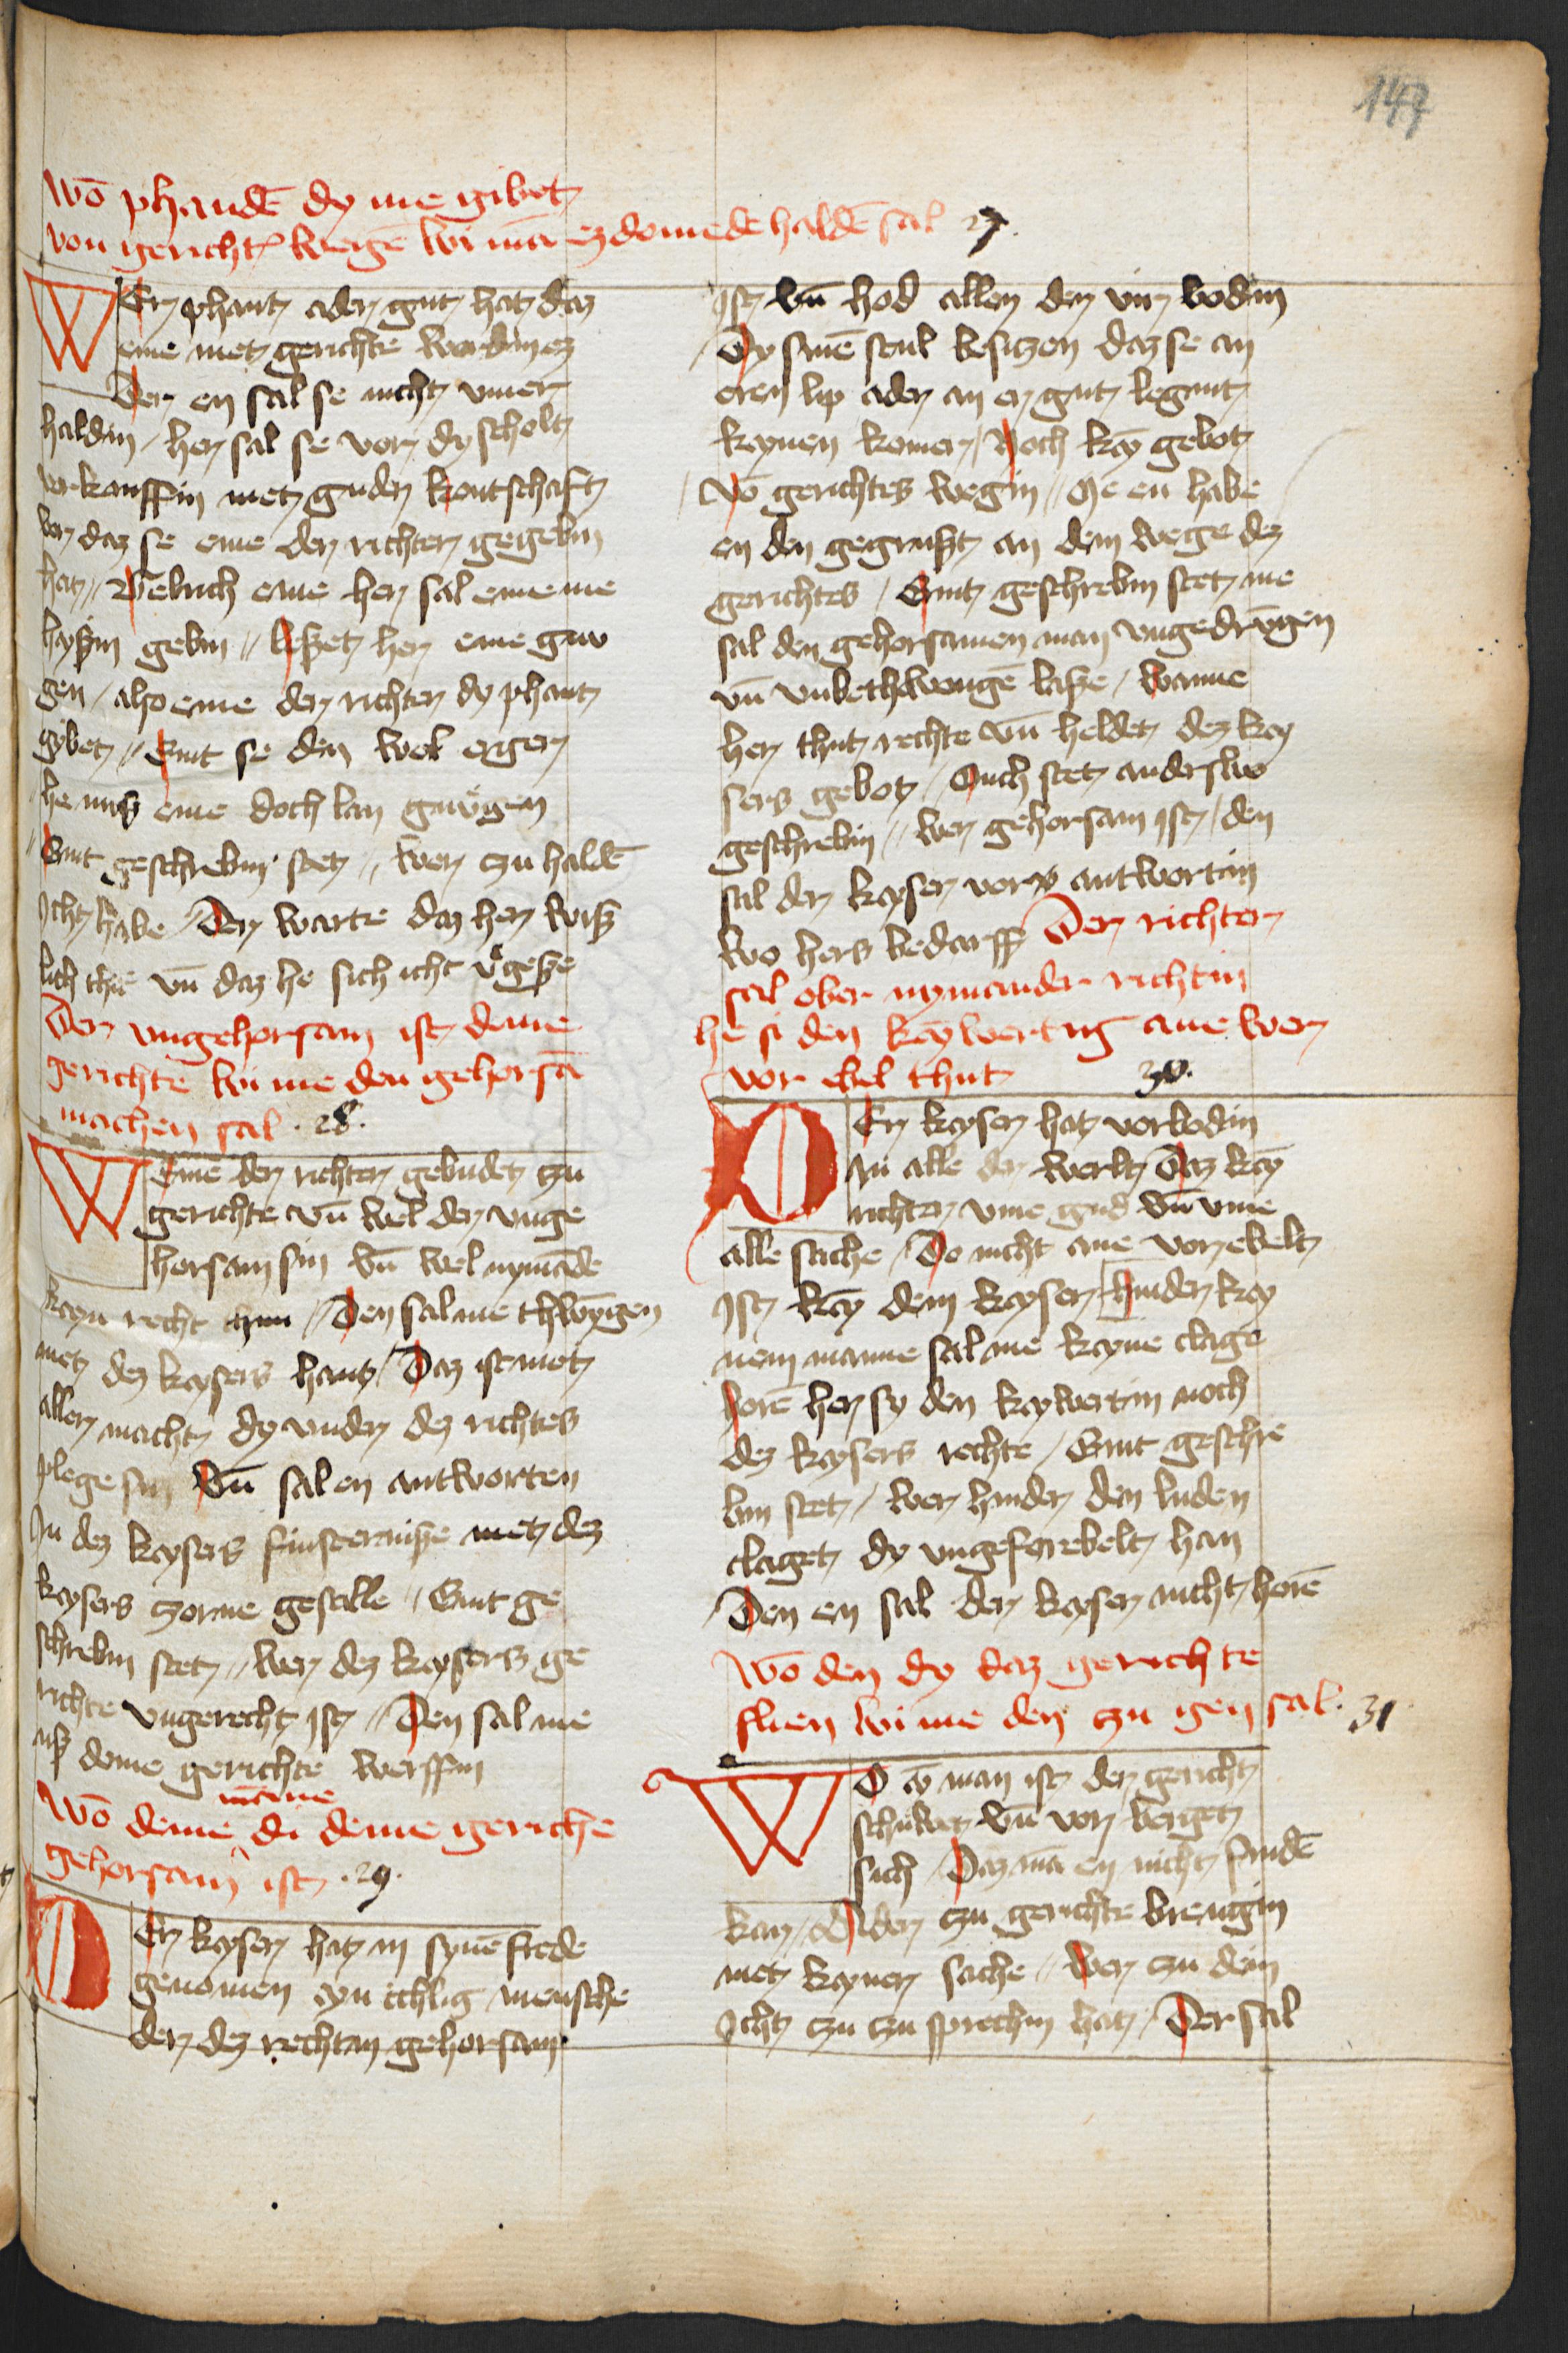 147
Wō phandē dy me gibet
von gerichtˀ wegē wi mā ez do mede haldē sal 27.
WEr phant ader gut hat daz
eme met gerichte wordin ez
Der en sal se nicht vmer
haldin / her sal se vor dy scholt
vorkouffin met guder kontschaft
vor daz se eme der richter gegebin
hat // Welich eme her sal eme me
heyßin gebin // leßet her eme gnu
gen / also eme der richter dy phant
gybet // Sint se den wol erger
he mus eme doch lan gnůgen
Sint geschrebin stet // wer zu haldē
Icht habe / Der warte daz her wiß
lich thu vn̄ daz he sich icht vͤgeße
Der vngehorsam ist deme
gerichte wi me den gehorsā
machen sal . 28.
WEme der richter gebudet zu
gerichte vn̄ wel der vnge
horsam sin vn̄ wel nymāde
kayn recht thun / Den sal me thwȳgen
met dez keysers hant / Daz ist met
aller macht dy vnder dez richters
plege sin Vn̄ sal en antworten
In dez keysers finsterniße met dez
keysers zorne geselle / Sint ge
schrebin stet // wer dez keysers ge
richte vngerecht ist / Den sal me
uß deme gerichte werffin
Wō deme manne di deme geriche
gehorsam ist . 29.
DEr keyser hat in synē frede
genomen eyn ichlig mensche
der dez rechtin gehorsam
Ist vn̄ hod allen den vor bodin
Dy sinē stul besitzen daz se an
eren lip ader an er gut legint
keynen komer / Noch key gebot
Vō gerichtes wegin // Me en habe
en den gegrußt an dem wege dez
gerichtes / Sint geschrebin stet me
sal den gehorsamen man vngedrūgen
vn̄ vnbethwongē laße / wanne
her thut rechte vn̄ heldet dez key
sers gebot / Ouch stet anderswo
geschrebin // wer gehorsam ist / den
sal der keyser vorß antwortin
wo hers bedarff Der richter
sal ober nymander richtin
he si den keywertig ane wer
vor ebel thut 30.
DEr keyser hat vorbodin
In alle der werlt Daz key
richter vme gud vn̄ vme
alle sache / Do nicht ane vorebelt
Ist key dem keyser / hinder key
nem manne sal me keyne clage
horē her sy den keywertin noch
dez keysers rechte / Sint geschre
bin stet / wer hinder den luden
claget dy vngeforebelt han
Den en sal der keyser nicht horē
Wō den dy daz gerichte
flien wi me den zu gen sal . 31
WO eȳ man ist der gericht
schuwet vn̄ vor berget
sich / Daz mā en nicht findē
kan / Ader zu gerichte brengin
met keyner sache // wer zu dem
Icht zu zu sprechin hat / Der sal